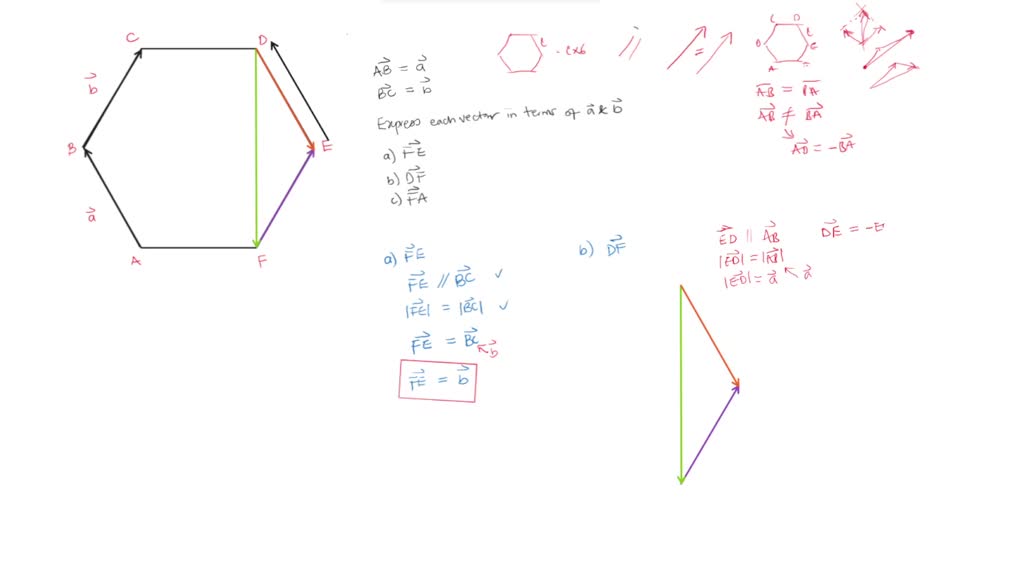 C
D
b⃗
B
E
a⃗
A
F
AB⃗ = a⃗
BC⃗ = b⃗
Express each vector in terms of a⃗ & b⃗
a) FE⃗
b) DF⃗
c) FA⃗
L
- 6x6
//
=
C D
B
E
A
AB = BA
AB⃗ ≠ BA⃗
AB⃗ = -BA⃗
a) FE⃗
FE⃗ // BC⃗ ✓
|FE⃗| = |BC⃗| ✓
FE⃗ = BC⃗
b⃗
FE⃗ = b⃗
b) DF⃗
ED⃗ || AB⃗
|ED⃗| = |AB⃗|
|ED⃗| = a⃗
a⃗
DE⃗ = -E